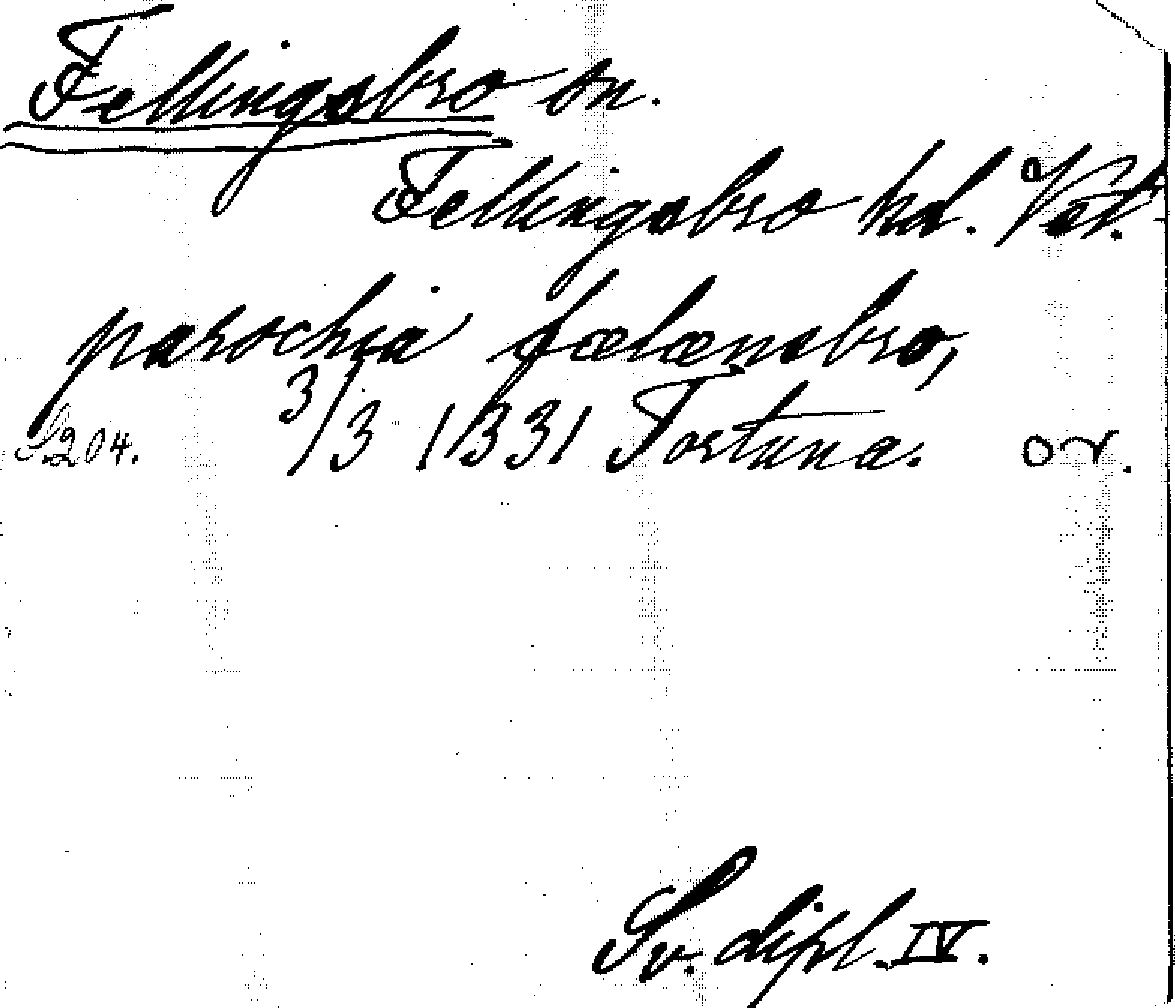 Fellingsbro sn.
Fellingsbro hd. Vstm.
parochia fælænsbro,
S204. 3/3 1331 Tortuna. or.
Sv. dipl. IV.